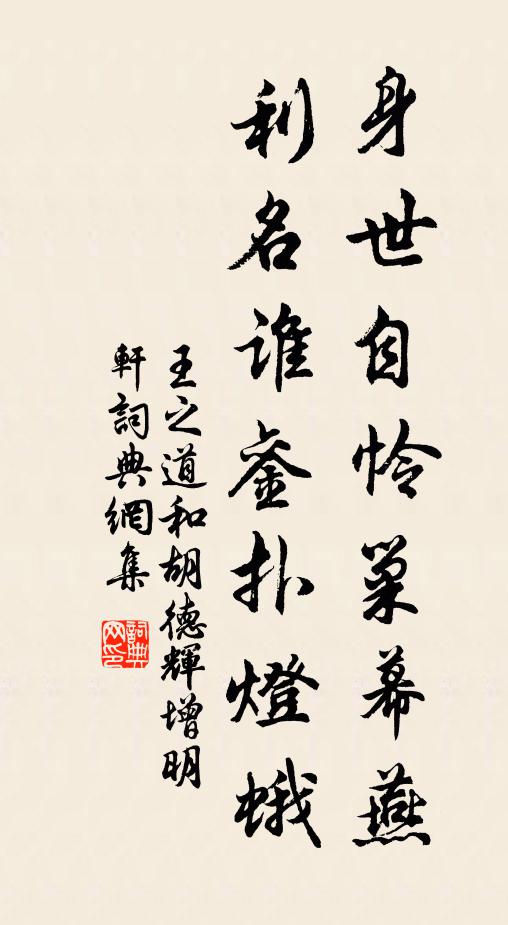 身世自怜巢幕燕
利名誰扑燈蛾
王之道和胡德輝增明
軒詞典網集
詞典
网印